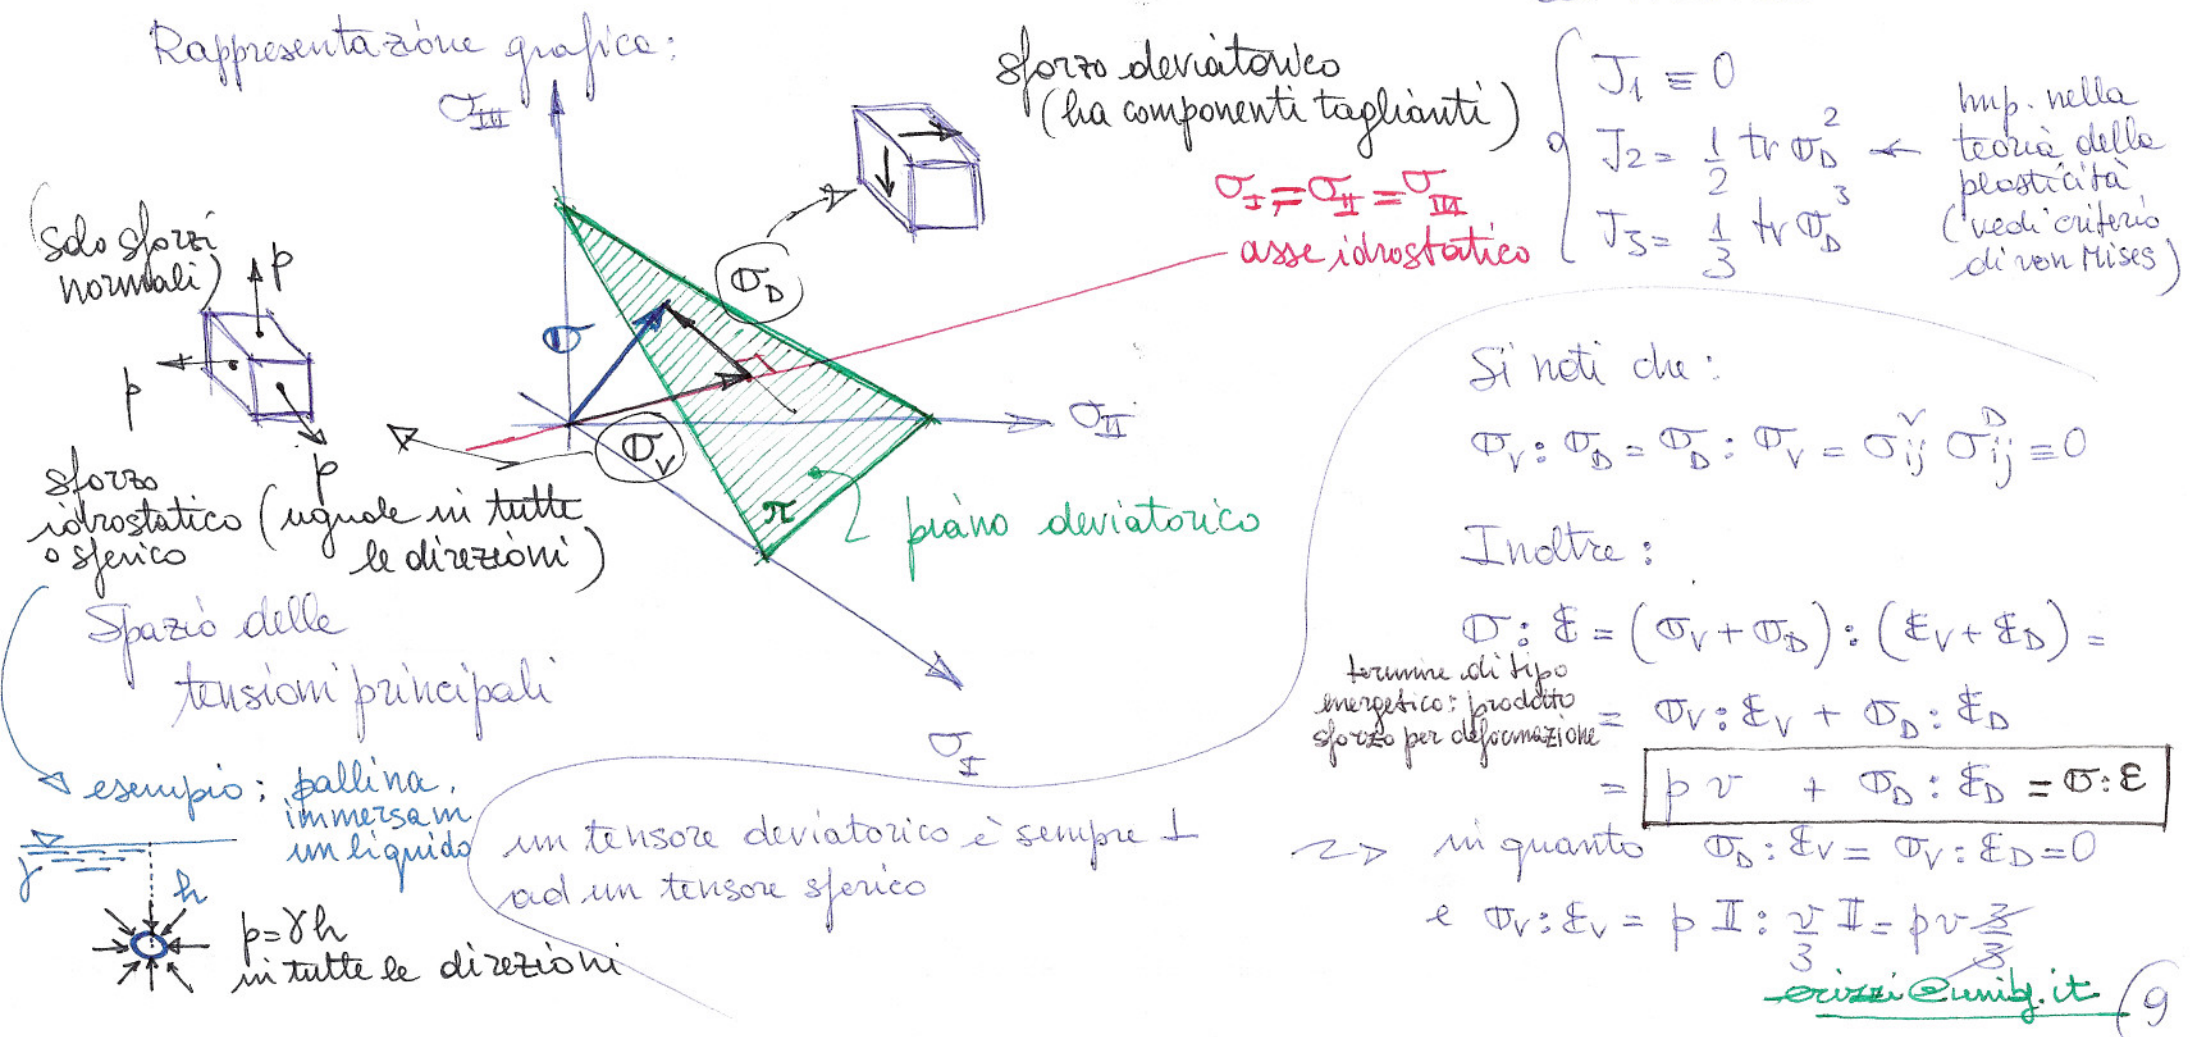 Rappresentazione grafica:
σ_III
sforzo deviatorico
(ha componenti taglianti)
J1 ≡ 0
J2 = 1/2 tr σ_D^2 ←
J3 = 1/3 tr σ_D^3
Imp. nella
teoria della
plasticità
(vedi criterio
di von Mises)
σ_I = σ_II = σ_III
asse idrostatico
(solo sforzi
normali)
p
p
p
σ_D
σ
σ_V
σ_II
π
piano deviatorico
sforzo
idrostatico (uguale in tutte
o sferico le direzioni)
Spazio delle
tensioni principali
σ_I
esempio: pallina
immersa in
un liquido
γ
h
p=γh
in tutte le direzioni
un tensore deviatorico è sempre ⊥
ad un tensore sferico
Si noti che:
σ_V : σ_D = σ_D : σ_V = σ_ij^V σ_ij^D = 0
Inoltre:
σ : ε = (σ_V + σ_D) : (ε_V + ε_D) =
termine di tipo
energetico: prodotto
sforzo per deformazione
= σ_V : ε_V + σ_D : ε_D
= p v + σ_D : ε_D = σ : ε
in quanto σ_D : ε_V = σ_V : ε_D = 0
e σ_V : ε_V = p I : v/3 I = p v 3/3
erizzi@unibg.it
9